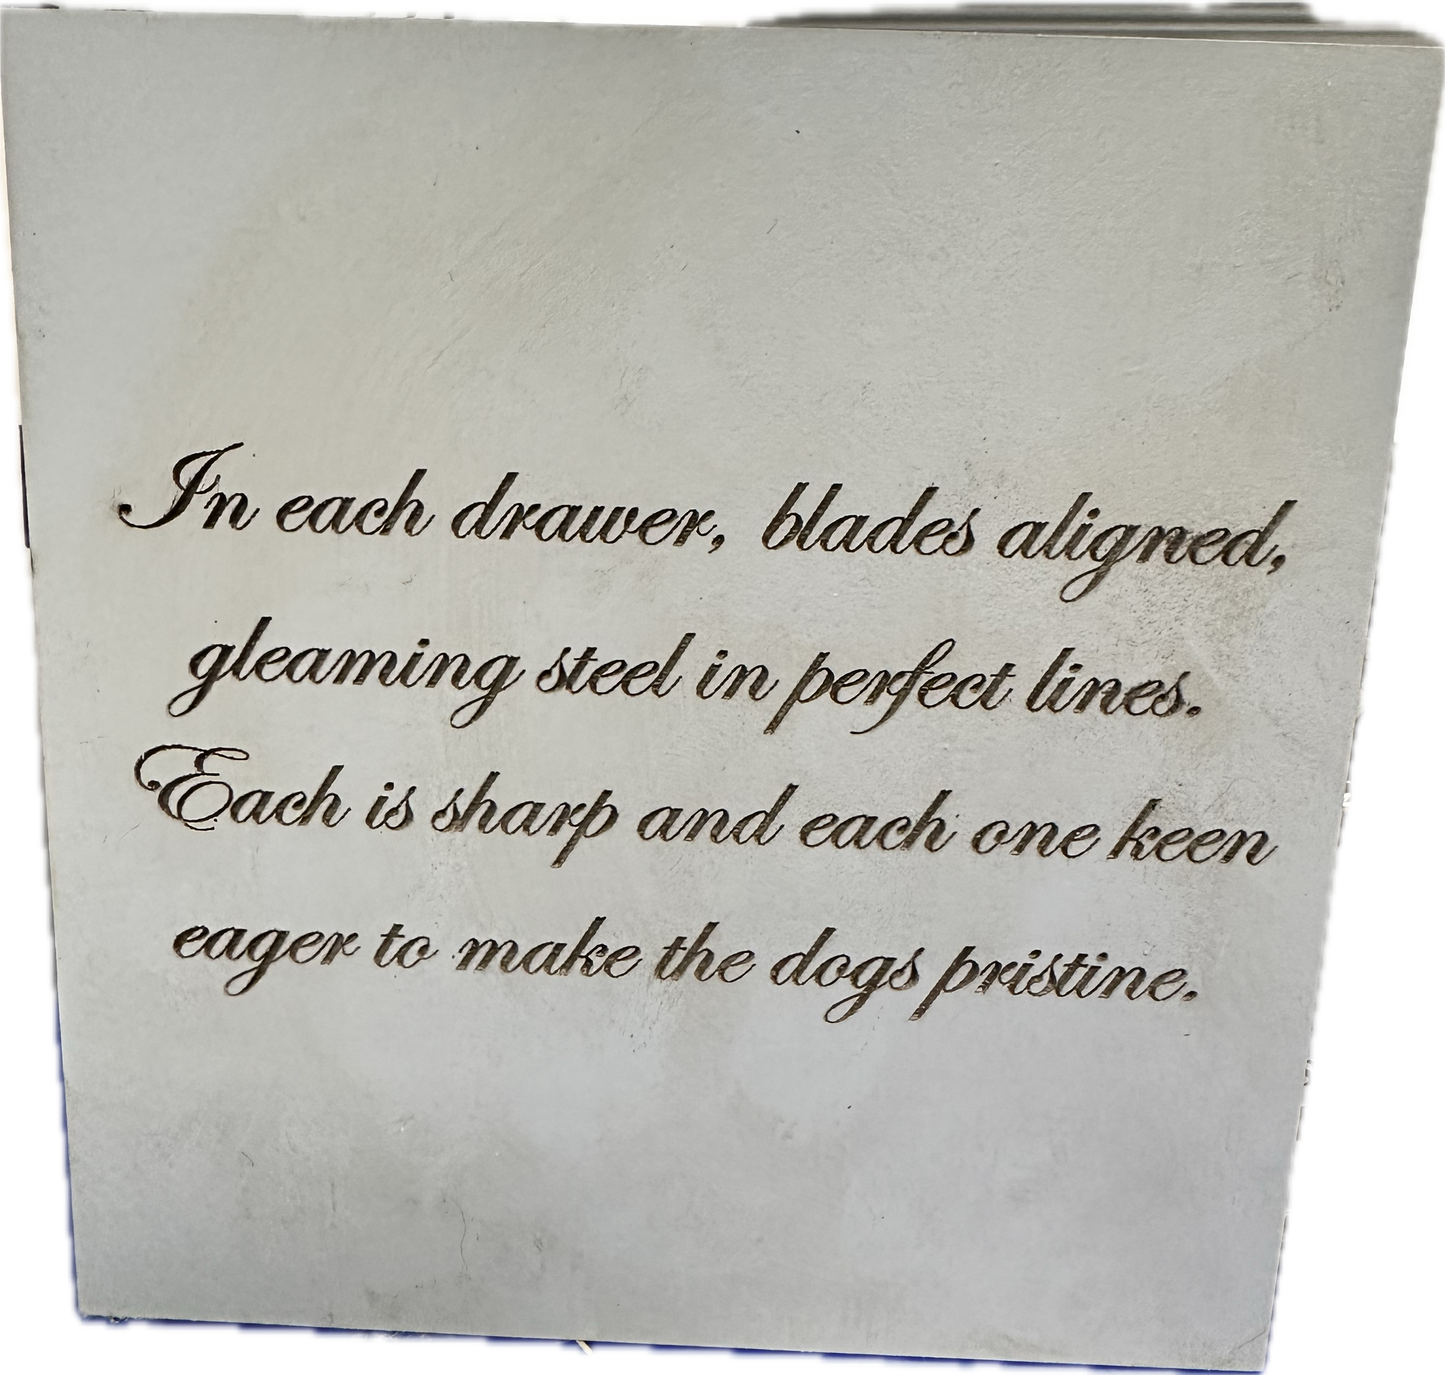 In each drawer, blades aligned,
gleaming steel in perfect lines.
Each is sharp and each one keen
eager to make the dogs pristine.